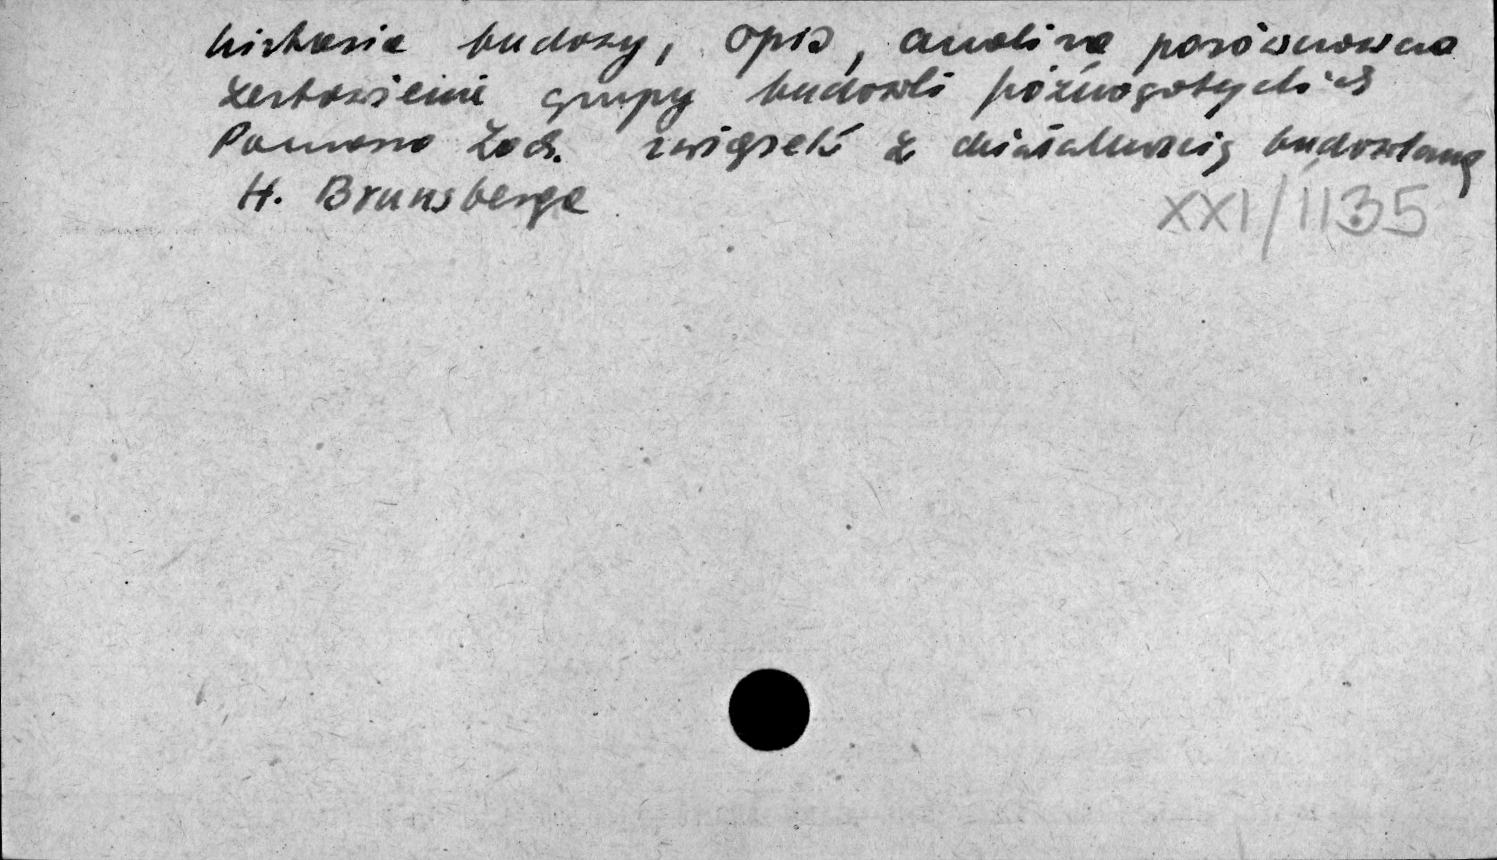 historia budowy, opis, analiza porównawcza
zestawienie grupy budowli póżnogotyckich
Pomorza Zach. związek z działalnością budowlaną
H. Brunsberga
XXI/1135